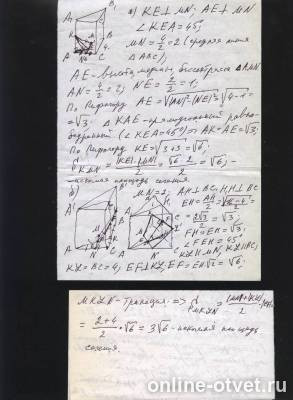 а) KE⊥MN; AE⊥MN
∠KEA=45°
MN = 4/2 = 2 (средняя линия
△ABC);
AE – высота, медиана, биссектриса △AMN
AN = 4/2 = 2; NE = 2/2 = 1;
По Пифагору AE = √|AN|²-|NE|² = √4-1 =
= √3; △KAE – прямоугольный равно-
бедренный (∠KEA=45°) ⇒ AK=AE=√3;
По Пифагору KE = √3+3 = √6;
S KMN = |KE|·|MN|/2 = √6·2/2 = √6; –
искомая площадь сечения.
б)
MN=2; AH⊥BC
EH = AH/2
= 2√3/2 = √3;
FH = √3;
∠FEH = 45°
KL||MN, KL||BC,
KL=BC=4; EF⊥KL, EF=EH√2=√6.
MKLN – трапеция ⇒ S MKLN
= 2+4/2 · √6 = 3√6 – искомая площадь
сечения.
online-otvet.ru